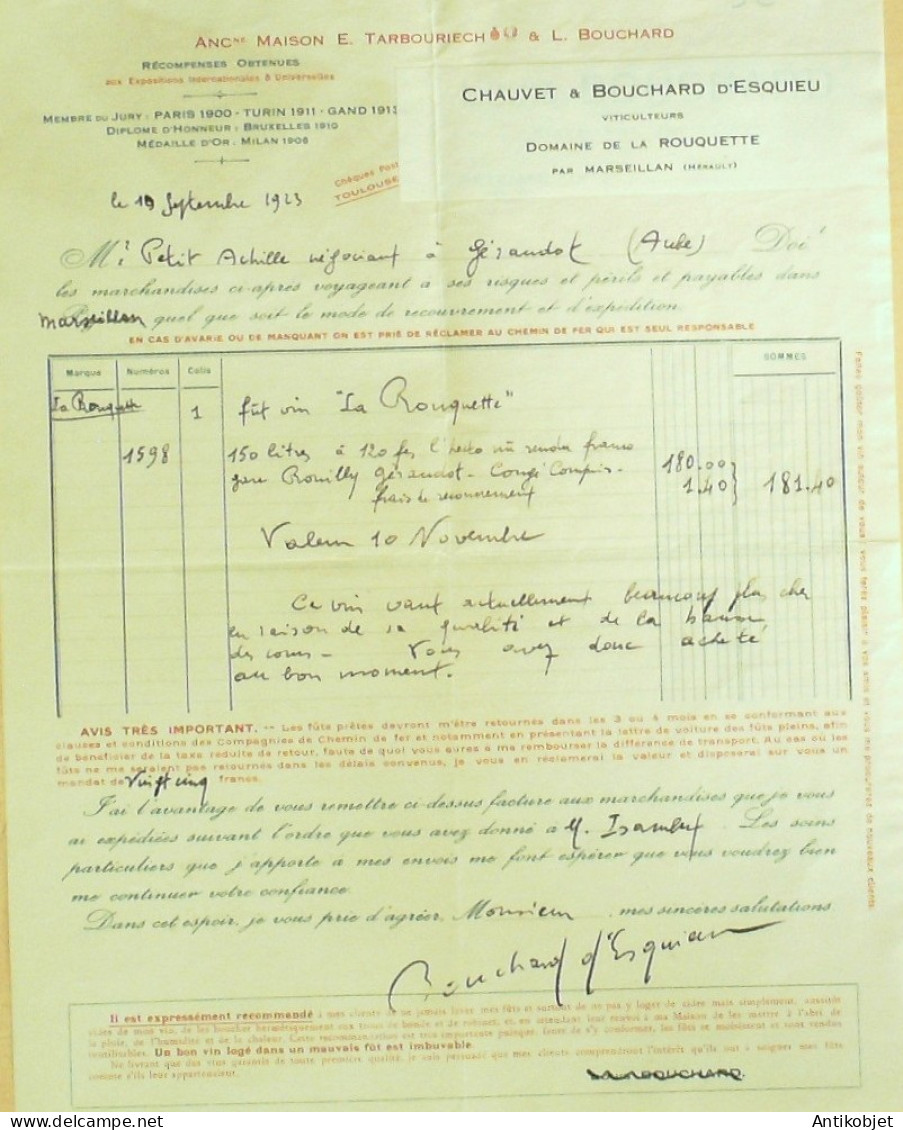 ANCNE MAISON E. TARBOURIECH & L. BOUCHARD
RÉCOMPENSES OBTENUES
aux Expositions Internationales & Universelles
MEMBRE DU JURY : PARIS 1900 - TURIN 1911 - GAND 1913
DIPLOME D'HONNEUR : BRUXELLES 1910
MÉDAILLE D'OR : MILAN 1906
CHAUVET & BOUCHARD D'ESQUIEU
VITICULTEURS
DOMAINE DE LA ROUQUETTE
PAR MARSEILLAN (HÉRAULT)
Chèques Post
TOULOUSE
le 19 Septembre 1923
Mr Petit Achille négociant à Géraudot (Aube) Doit
les marchandises ci-après voyageant à ses risques et périls et payables dans
Marseillan quel que soit le mode de recouvrement et d'expédition.
EN CAS D'AVARIE OU DE MANQUANT ON EST PRIÉ DE RÉCLAMER AU CHEMIN DE FER QUI EST SEUL RESPONSABLE
Marque Numéros Colis SOMMES
La Rouquette 1 fût vin "La Rouquette"
1598 150 litres à 120 fcs l'hecto nu rendu franco
gare Rouilly Géraudot - Congé Compris - 180.00
frais de recouvrement 1.40 181.40
Valeur 10 Novembre
Ce vin vaut actuellement beaucoup plus cher
en raison de sa qualité et de la hausse
des cours - Vous avez donc acheté
au bon moment.
AVIS TRÈS IMPORTANT. -- Les fûts prêtés devront m'être retournés dans les 3 ou 4 mois en se conformant aux
clauses et conditions des Compagnies de Chemin de fer et notamment en présentant la lettre de voiture des fûts pleins, afin
de bénéficier de la taxe réduite de retour, faute de quoi vous aurez à me rembourser la différence de transport. Au cas où les
fûts ne me seraient pas retournés dans les délais convenus, je vous en réclamerai la valeur et disposerai sur vous un
mandat de Vingt cinq francs.
J'ai l'avantage de vous remettre ci-dessus facture aux marchandises que je vous
ai expédiées suivant l'ordre que vous avez donné à M. Isambert. Les soins
particuliers que j'apporte à mes envois me font espérer que vous voudrez bien
me continuer votre confiance.
Dans cet espoir, je vous prie d'agréer, Monsieur, mes sincères salutations
Bouchard d'Esquieu
Il est expressément recommandé à mes clients de ne jamais laver mes fûts et surtout de ne pas y loger de cidre mais simplement, aussitôt
vides de mon vin, de les boucher hermétiquement aux trous de bonde et de robinet, et, en attendant leur renvoi à ma Maison de les mettre à l'abri de
la pluie, de l'humidité et de la chaleur. Cette recommandation est très importante puisque, faute de s'y conformer, les fûts se moisissent et sont rendus
inutilisables. Un bon vin logé dans un mauvais fût est imbuvable.
Ne livrant que des vins garantis de toute première qualité, je suis persuadé que mes clients comprendront l'intérêt qu'ils ont à soigner mes fûts
comme s'ils leur appartenaient.
L. BOUCHARD.
Faites goûter mon vin autour de vous, vous ferez plaisir à vos amis et vous me procurerez de nouveaux clients
Antikobjet